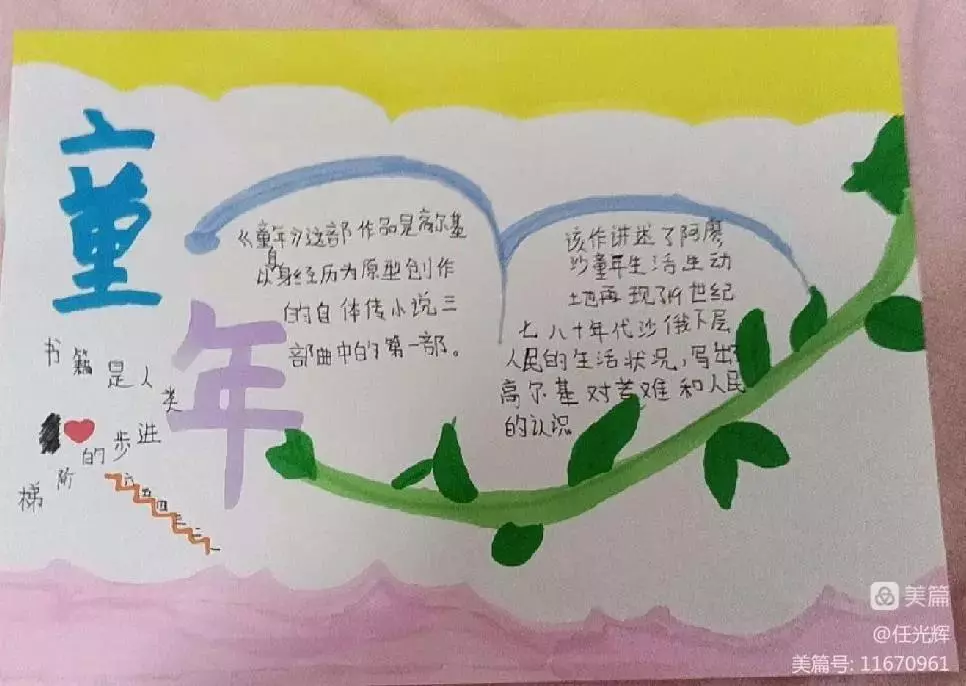 童年
《童年》这部作品是高尔基
以自身经历为原型创作
的自体传小说三
部曲中的第一部。
该作讲述了阿廖
沙童年生活生动
地再现了19世纪
七八十年代沙俄下层
人民的生活状况，写出
高尔基对苦难和人民
的认识
书籍是人类
进步的
阶梯
六五四三二一
美篇
@任光辉
美篇号: 11670961